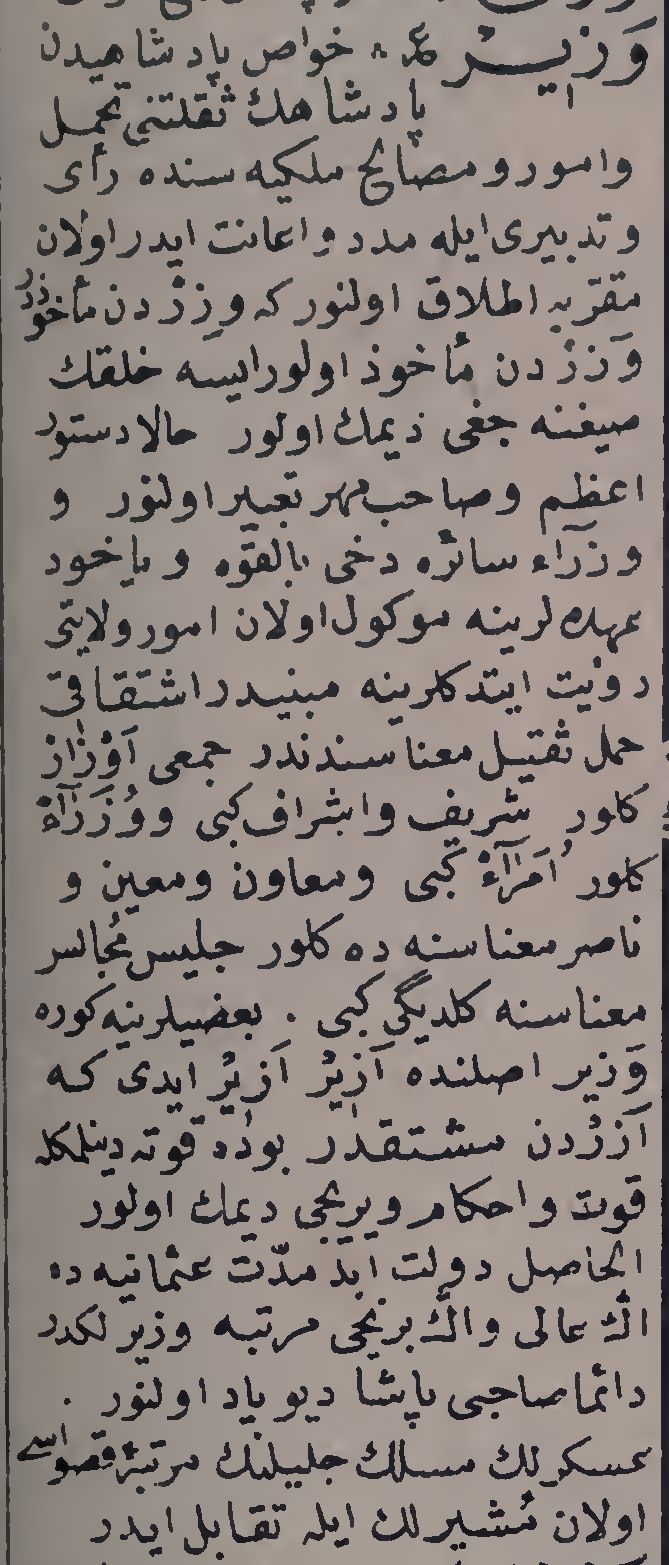 وَزِيـــر عـ ٨. خواص پادشاهیدن
پادشاهك ثقلتنی تحمل
وامور و مصالح ملکیه سنده رأی
و تدبیری ایله مدد و اعانت ایدر اولان
مقرّبه اطلاق اولنور که وِزْر دن مأخوذدر
وَزَرْ دن مأخوذ اولور ایسه خلقك
صیغنه جغی دیمك اولور حالا دستور
اعظم و صاحب مهر تعبیر اولنور و
وزرآء سائره دخی بالقوه و یاخود
عهده لرینه موکول اولان امور ولایتی
رؤیت ایتدکلرینه مبنیدر اشتقاقی
حمل ثقیل معناسندندر جمعی اَوْزَارْ
کلور شریف و اشراف کبی و وُزَرَآءْ
کلور اُمَرَآءْ کبی و معاون و معین و
ناصر معناسنه ده کلور جلیس مُجالس
معناسنه کلدیگی کبی . بعضیلرینه کوره
وَزیر اصلنده اَزِیْر اَزِیْر ایدی که
اَزْرْدن مشتقدر بوده قوته دینلمکله
قوت و احکام ویریجی دیمك اولور
الحاصل دولت ابد مدّت عثمانیه ده
اڭ عالی و اڭ برنجی مرتبه وزیر لکدر
دائما صاحبی پاشا دیو یاد اولنور .
عسکرلك مسلك جلیلنك مرتبۀ قصواسی
اولان مُشیرلك ایله تقابل ایدر